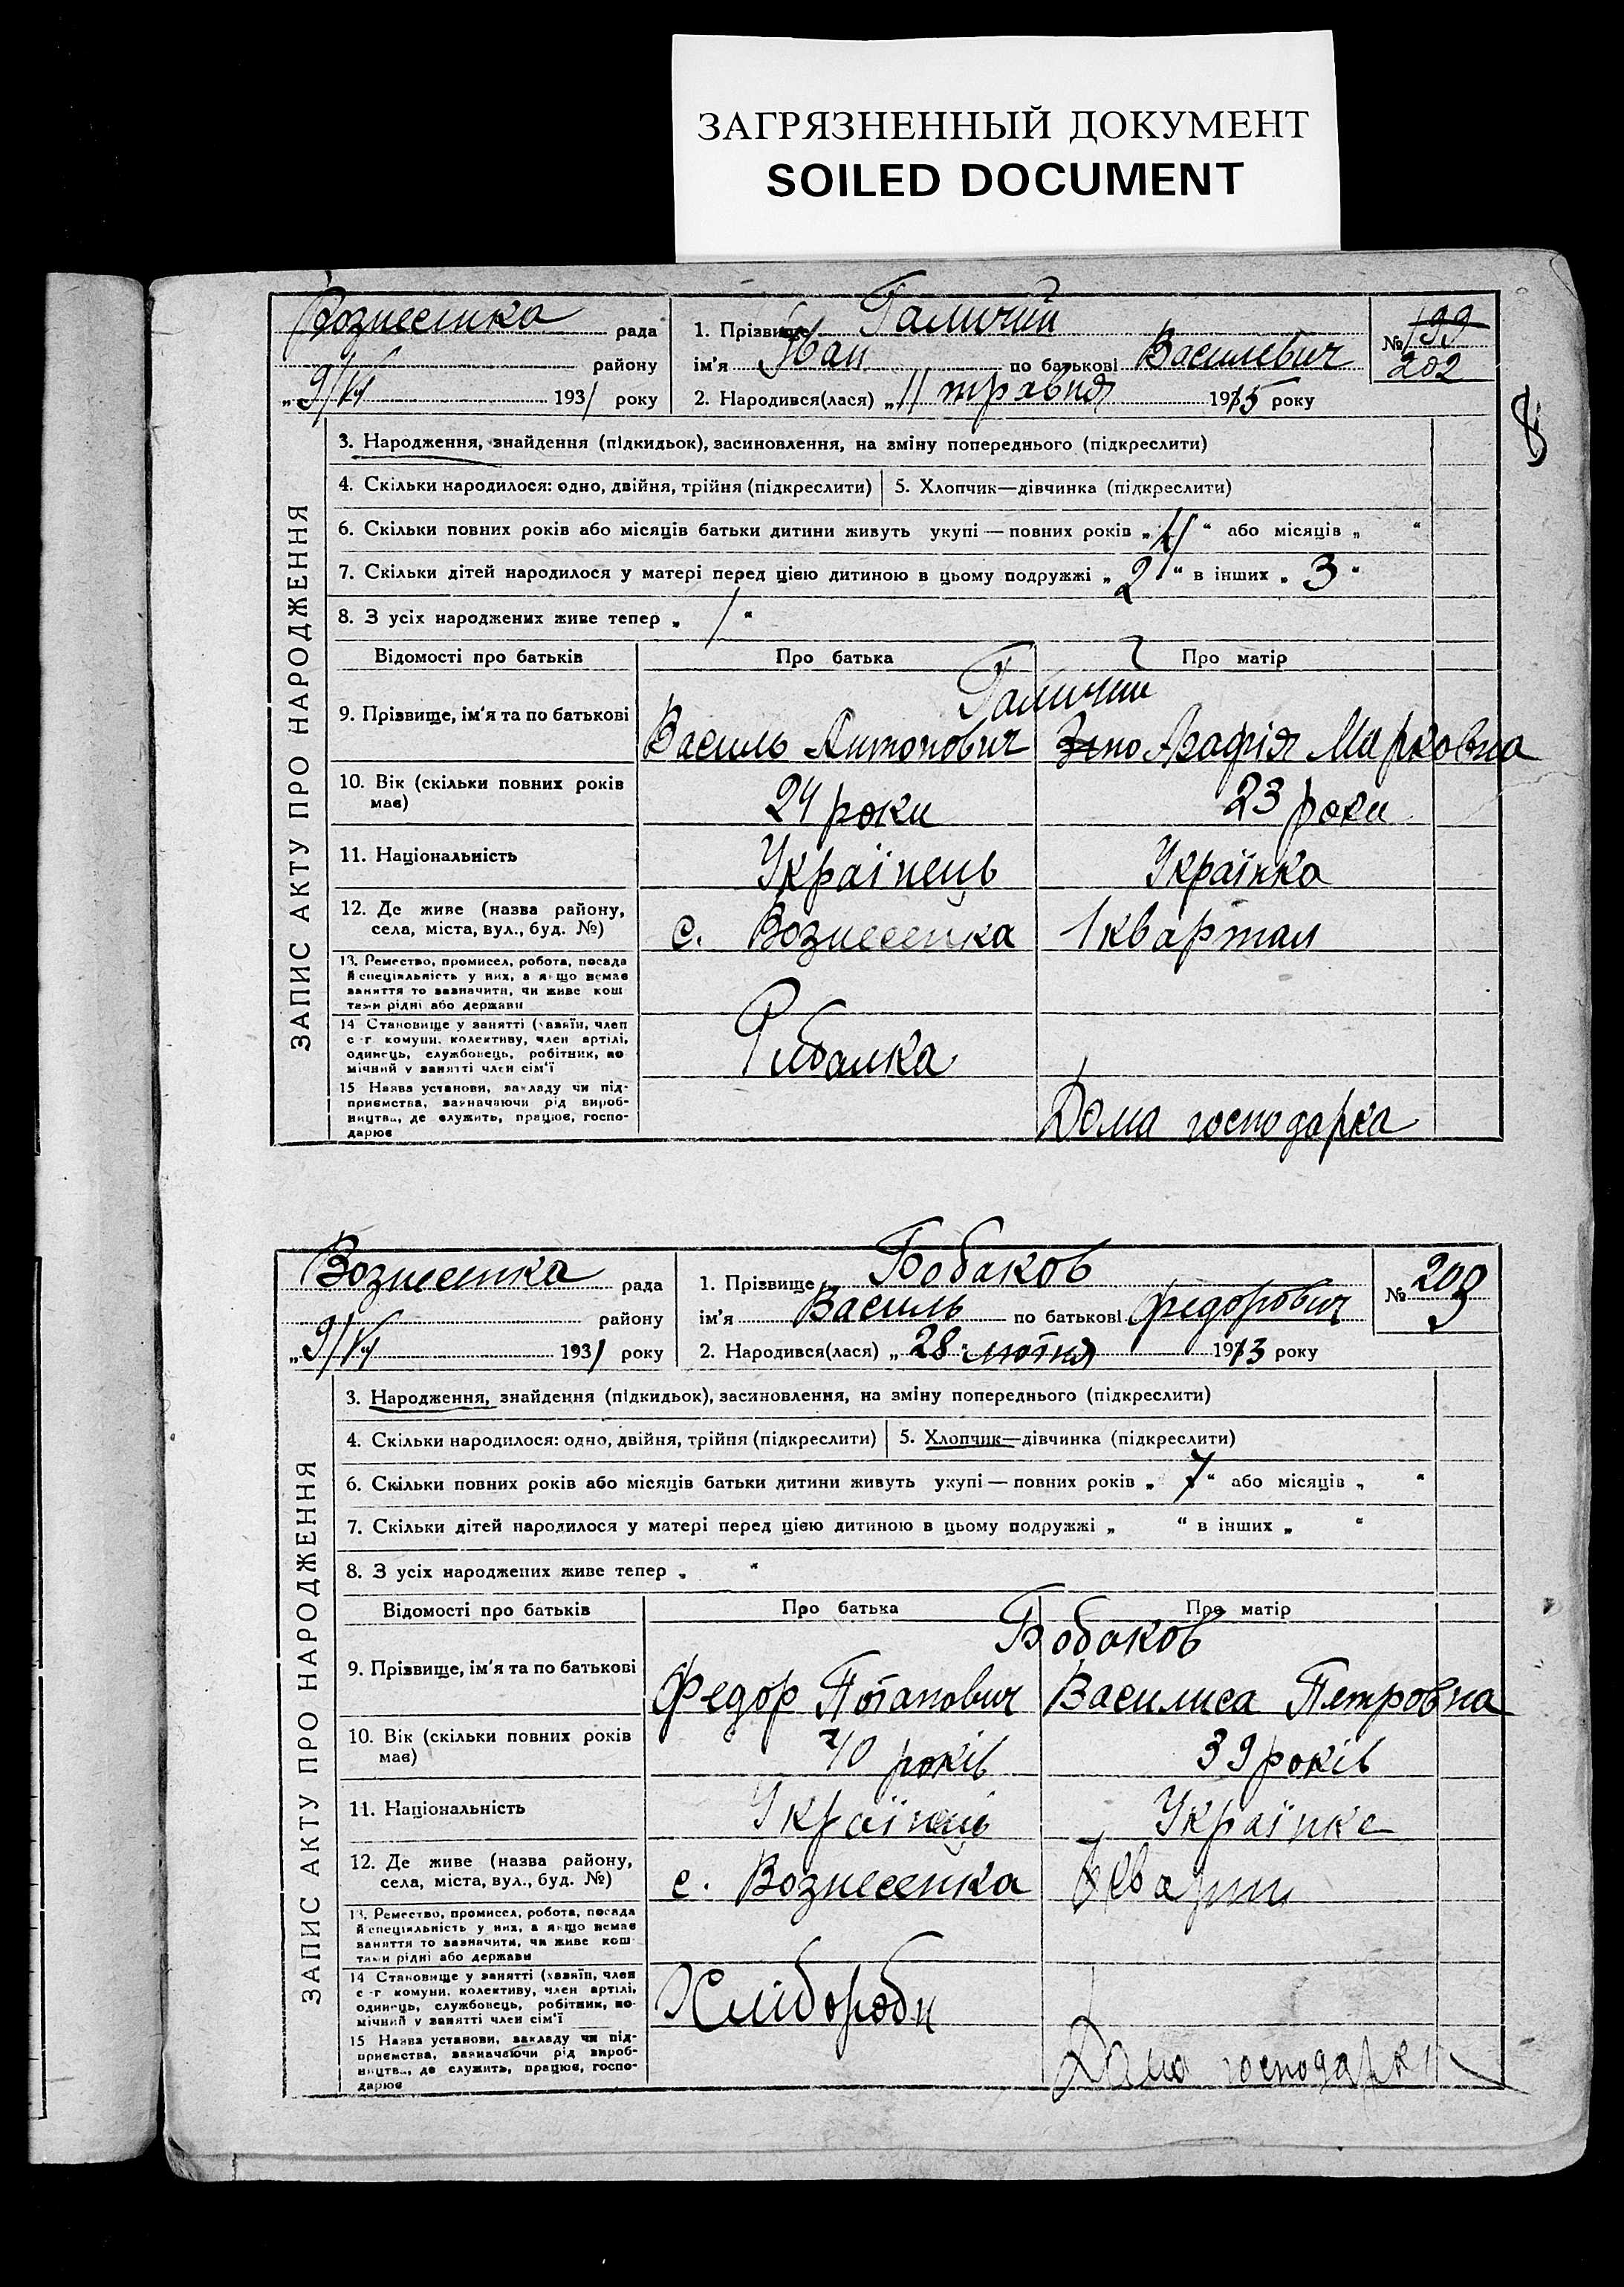 ЗАГРЯЗНЕННЫЙ ДОКУМЕНТ
SOILED DOCUMENT
Вознесенка рада
району
„9/VI 1931 року
1. Прізвище Галичий
ім'я Іван по батькові Василевич
2. Народився(лася) „11 травня 1915 року
№ 199
202
8
ЗАПИС АКТУ ПРО НАРОДЖЕННЯ
3. Народження, знайдення (підкидьок), засиновлення, на зміну попереднього (підкреслити)
4. Скільки народилося: одно, двійня, трійня (підкреслити) 5. Хлопчик—дівчинка (підкреслити)
6. Скільки повних років або місяців батьки дитини живуть укупі — повних років „4“ або місяців „ “
7. Скільки дітей народилося у матері перед цією дитиною в цьому подружжі „2“ в інших „3“
8. З усіх народжених живе тепер „1“
Відомості про батьків Про батька Про матір
Галичий
9. Прізвище, ім'я та по батькові Василь Антонович Агафія Марковна
10. Вік (скільки повних років
має) 24 роки 23 роки
11. Національність Українець Українка
12. Де живе (назва району,
села, міста, вул., буд. №) с. Вознесенка 1 квартал
13. Ремество, промисел, робота, посада
й спеціяльність у них, а якщо немає
заняття то зазначити, чи живе кош
тами рідні або держави
14 Становище у занятті (хазяїн, член
с-г комуни, колективу, член артілі,
одинець, службовець, робітник, по
мічний у занятті член сім'ї Рибалка
15 Назва установи, закладу чи під-
приємства, зазначаючи рід вироб-
ництва, де служить, працює, госпо-
дарює Дома господарка
Вознесенка рада
району
„9/VI 1931 року
1. Прізвище Бобаков
ім'я Василь по батькові Федорович
2. Народився(лася) „28“ лютня 1913 року
№ 203
ЗАПИС АКТУ ПРО НАРОДЖЕННЯ
3. Народження, знайдення (підкидьок), засиновлення, на зміну попереднього (підкреслити)
4. Скільки народилося: одно, двійня, трійня (підкреслити) 5. Хлопчик—дівчинка (підкреслити)
6. Скільки повних років або місяців батьки дитини живуть укупі — повних років „7“ або місяців „ “
7. Скільки дітей народилося у матері перед цією дитиною в цьому подружжі „ “ в інших „ “
8. З усіх народжених живе тепер „ “
Відомості про батьків Про батька Про матір
Бобаков
9. Прізвище, ім'я та по батькові Федор Потапович Василиса Петровна
10. Вік (скільки повних років
має) 40 років 39 років
11. Національність Українець Українка
12. Де живе (назва району,
села, міста, вул., буд. №) с. Вознесенка
13. Ремество, промисел, робота, посада
й спеціяльність у них, а якщо немає
заняття то зазначити, чи живе кош
тами рідні або держави
14 Становище у занятті (хазяїн, член
с-г комуни, колективу, член артілі,
одинець, службовець, робітник, по-
мічний у занятті член сім'ї Хліборобн
15 Назва установи, закладу чи під-
приємства, зазначаючи рід вироб-
ництва, де служить, працює, госпо-
дарює Дома господарки